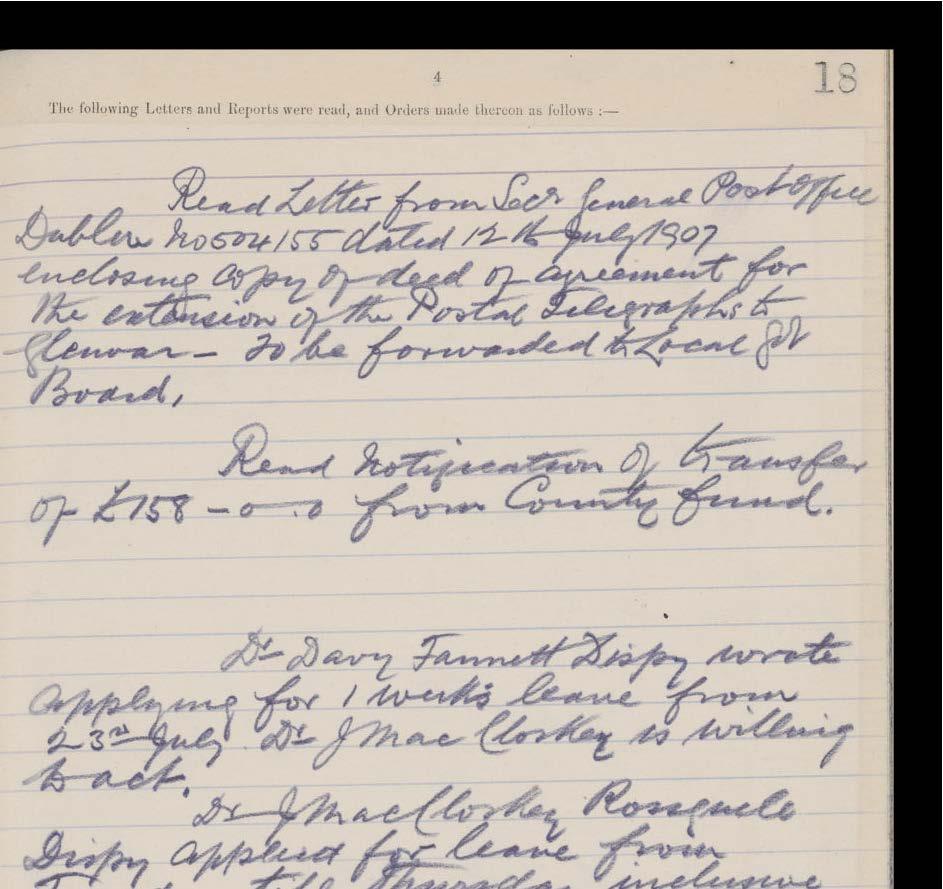 4
18
The following Letters and Reports were read, and Orders made thereon as follows :—
Read Letter from Secy General Post Office
Dublin No 504155 dated 12th July 1907
enclosing copy of deed of agreement for
the extension of the Postal Telegraphs to
Glenvar – To be forwarded to Local Gt
Board,
Read Notification of transfer
of £158 – 0 – 0 from County fund.
Dr Davy Fannett Dispy wrote
applying for 1 week's leave from
23rd July. Dr J MacCloskey is willing
to act.
Dr J MacCloskey Rossguile
Dispy applied for leave from
till Thursday inclusive